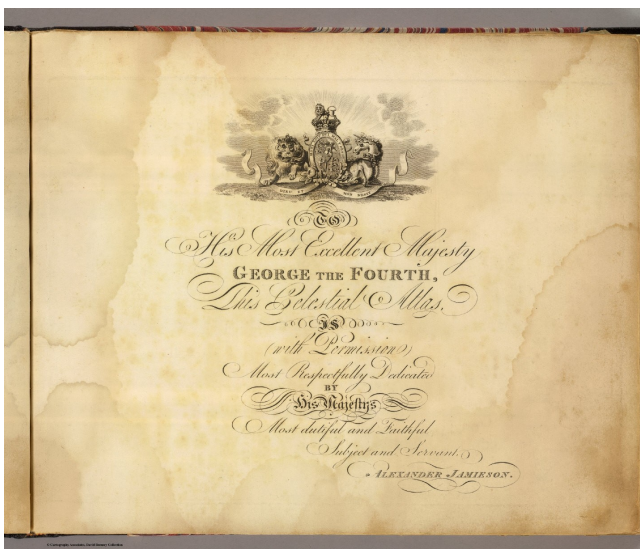 TO
His Most Excellent Majesty
GEORGE THE FOURTH,
This Celestial Atlas.
IS
(with Permission)
Most Respectfully Dedicated
BY
His Majestys
Most dutiful and Faithful
Subject and Servant.
ALEXANDER JAMIESON.
© Cartography Associates, David Rumsey Collection